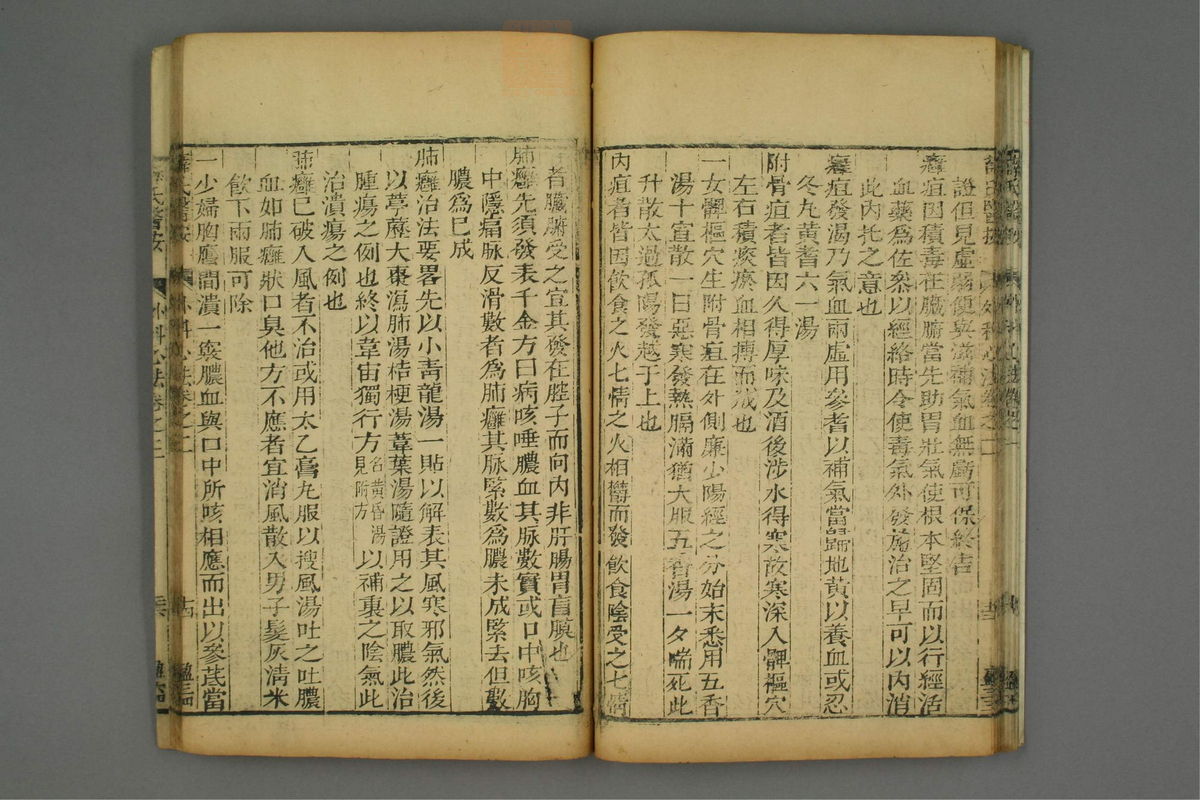 證但見虛弱便與滋補氣血無虧可保終吉
癰疽因積毒在臟腑當先助胃壯氣使根本堅固而以行經活
血藥爲佐參以經絡時令使毒氣外發施治之早可以內消
此內托之意也
癰疽發渴乃氣血兩虛用參耆以補氣當歸地黃以養血或忍
冬丸黃耆六一湯
附骨疽者皆因久得厚味及酒後涉水得寒故寒深入髀樞穴
左右積痰瘀血相搏而成也
一女髀樞穴生附骨疽在外側廉少陽經之分始末悉用五香
湯十宣散一日惡寒發熱膈滿猶大服五香湯一夕喘死此
升散太過孤陽發越于上也
內疽者皆因飮食之火七情之火相鬱而發飮食陰受之七情
者臟腑受之宜其發在腔子而向內非肝腸胃盲膜也
肺癰先須發表千金方曰病咳唾膿血其脉數實或口中咳胸
中隱痛脉反滑數者爲肺癰其脉緊數爲膿未成緊去但數
膿爲已成
肺癰治法要畧先以小靑龍湯一貼以解表其風寒邪氣然後
以葶藶大棗瀉肺湯桔梗湯葦葉湯隨證用之以取膿此治
腫瘍之例也終以韋宙獨行方名黃昏湯見附方以補裏之陰氣此
治潰瘍之例也
肺癰已破入風者不治或用太乙膏丸服以搜風湯吐之吐膿
血如肺癰狀口臭他方不應者宜消風散入男子髮灰淸米
飮下兩服可除
一少婦胸膺間潰一竅膿血與口中所咳相應而出以參芪當
薛氏醫按
外科心法卷之二